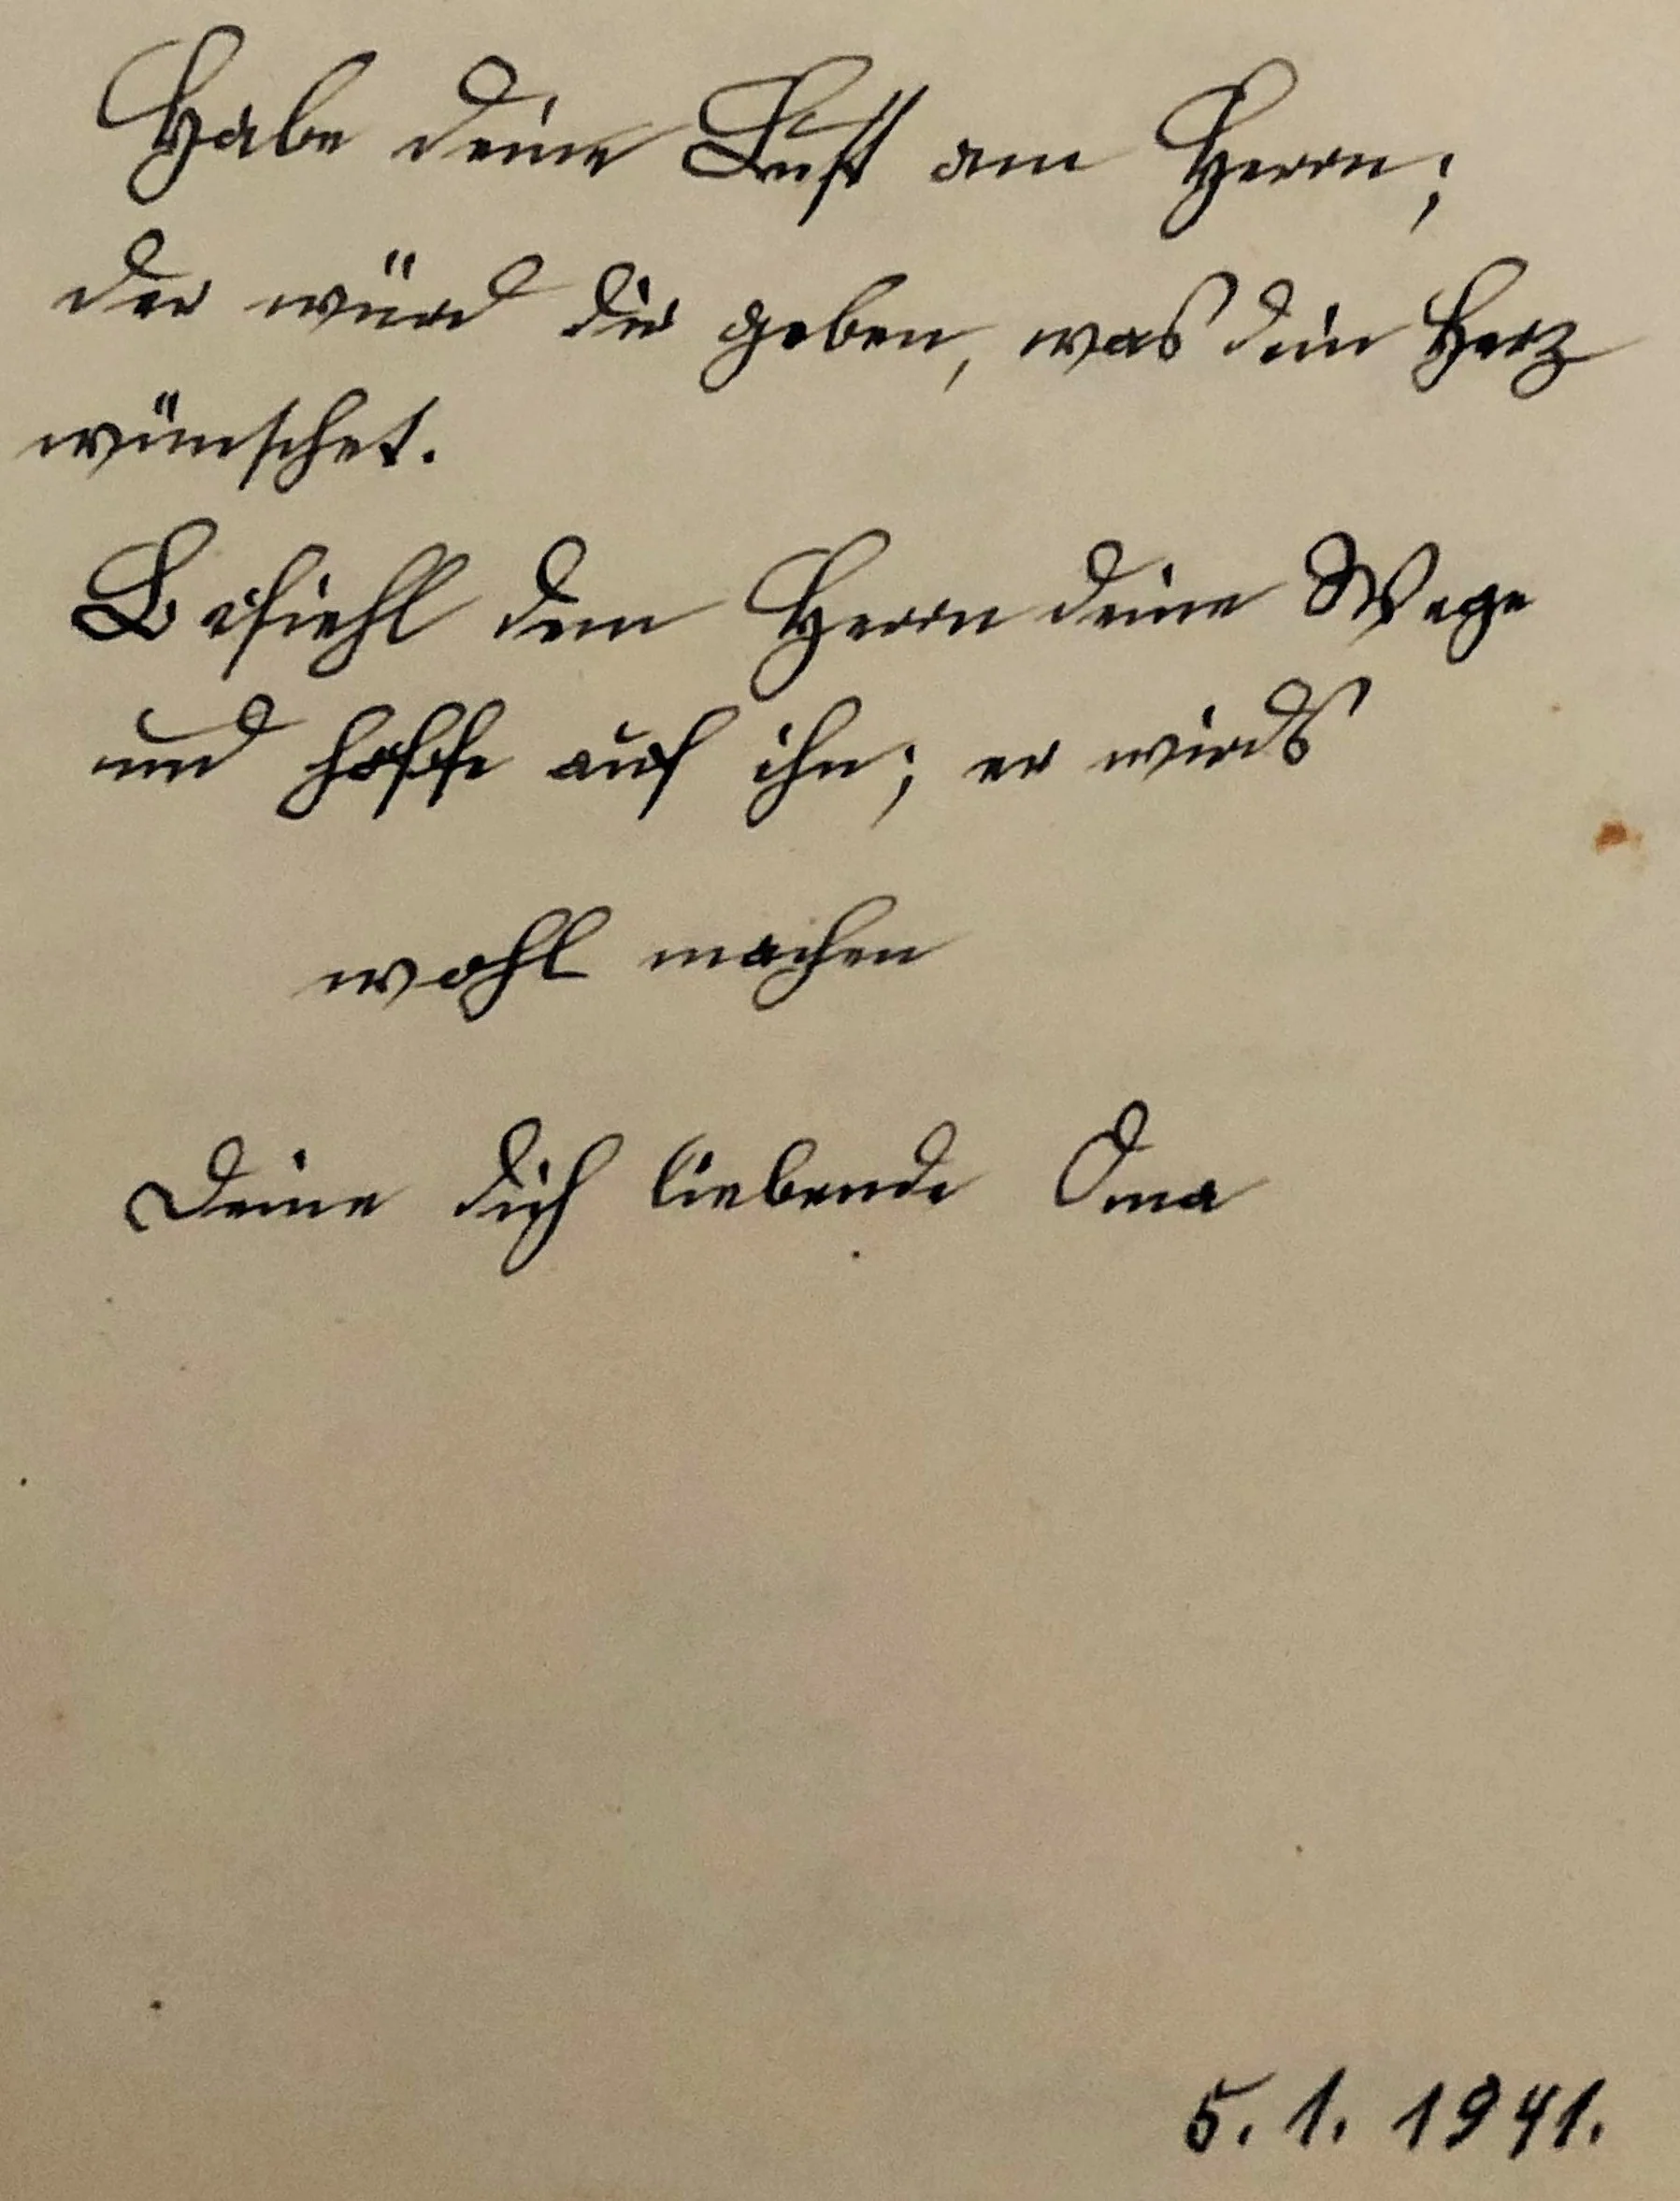 Habe deine Lust am Herrn;
der würd dir geben, was dein Herz
wünschet.
Befiehl dem Herrn deine Wege
und hoffe auf ihn; er wirds
wohl machen
Deine dich liebende Oma
5. 1. 1941.